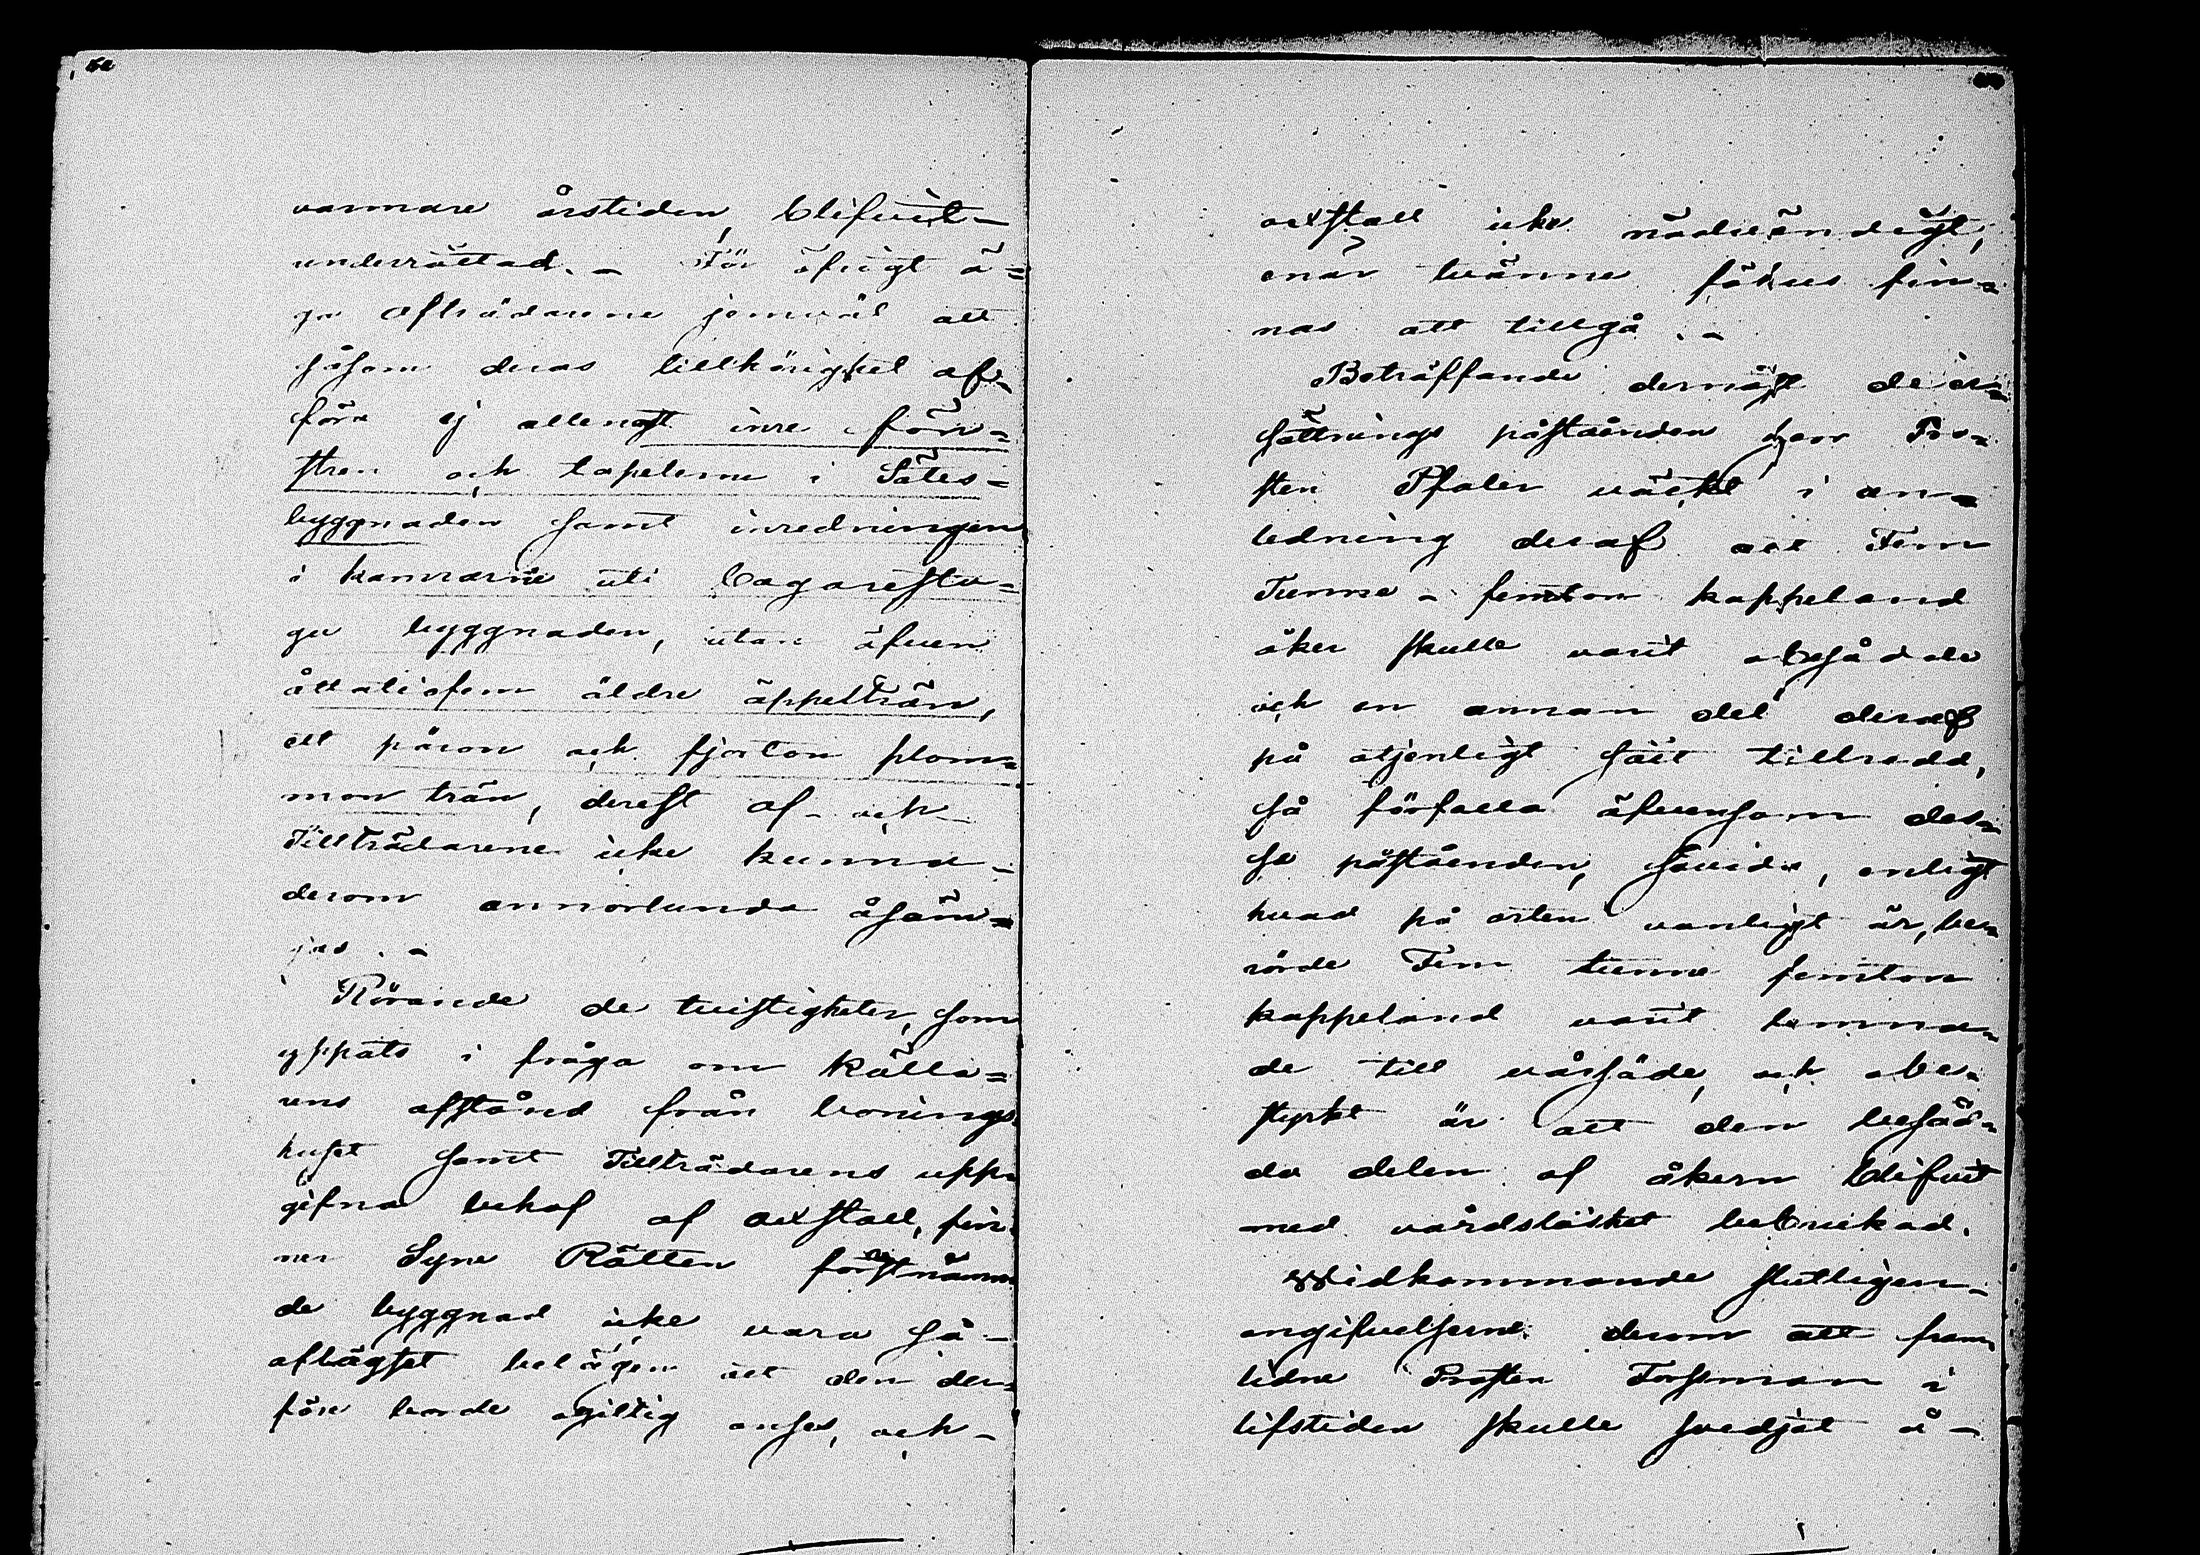 varmare årstiden, blifvit
underrättad. - För öfrigt ä=
ga afträdarene jemväl att
såsom deras tillhörighet af-
föra ej allenast inre fön=
stren och tapeterne i Sätes=
byggnaden samt inredningen
i kamrarne uti bagarestu=
gu byggnaden, utan äfven
åttatiofem äldre äppelträn,
ett päron och fjorton plom=
mon trän, derest af- och
Tillträdarene icke kunna
derom annorlunda åsäm=
jas. -
Rörande de tvistigheter, som
yppats i fråga om källa=
rens afstånd från bonings
huset samt Tillträdarens upp-
gifna behof af oxstall, fin-
ner Syne Rätten förstnämn
de byggnad icke vara så-
aflägset belägen att den der-
före borde ogiltig anses, och-
oxstall icke nödvändigt,
enär tvänne fähus fin-
nas att tillgå. -
Beträffande dernäst de er-
sättnings påståenden herr Pro-
sten Pfaler väckt i an-
ledning deraf att Fem
Tunne - femton kappeland
åker skulle varit obesådde
och en annan del deraf
på otjenligt sätt tillredd,
så förfalla äfvensom des-
sa påståenden, såvida, enligt
hvad på orten vanligt är, be-
rörde Fem tunne femton
kappeland varit lemna-
de till vårsäde, och obe-
styrkt är att den besåd-
da delen af åkern blifvit
med vårdslöshet bebrukad.
Widkommande slutligen
angifvelserne derom att fram
lidne Prosten Forseman i
lifstiden skulle svedjat å-